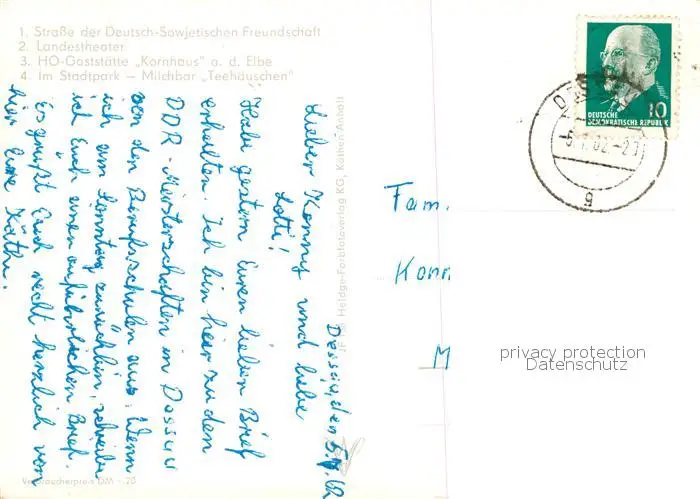 1. Straße der Deutsch-Sowjetischen Freundschaft
2. Landestheater
3. HO-Gaststätte „Kornhaus" a. d. Elbe
4. Im Stadtpark – Milchbar „Teehäuschen"
Dessau, den 5.7.62
Lieber Konny und liebe
Lotti!
Habe gestern Euren lieben Brief
erhalten. Ich bin hier zu den
DDR-Meisterschaften in Dessau
von den Berufsschulen aus. Wenn
ich am Sonntag zurück bin, schreibe
ich Euch einen ausführlichen Brief.
Es grüßt Euch recht herzlich von
hier Eure Käthe.
Heldge-Farbfotoverlag KG, Köthen Anhalt
Verbraucherpreis DM -,20
DEUTSCHE
DEMOKRATISCHE REPUBLIK
10
DESSAU
g
Fam.
Konn
M
privacy protection
Datenschutz